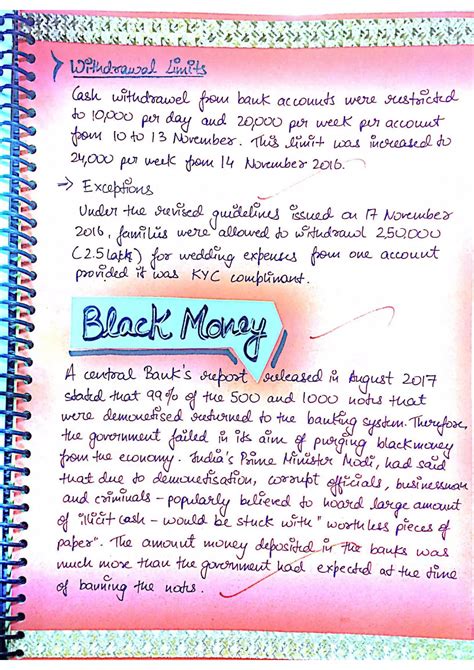 Withdrawal Limits
Cash withdrawel from bank accounts were restricted
to 10,000 per day and 20,000 per week per account
from 10 to 13 November. This limit was increased to
24,000 per week from 14 November 2016.
→ Exceptions
Under the revised guidelines issued on 17 November
2016, families were allowed to withdrawl 250,000
(2.5 lakh) for wedding expenses from one account
provided it was KYC complinant.
Black Money
A central Bank's report released in August 2017
stated that 99% of the 500 and 1000 notes that
were demonetised returned to the banking system. Therefore,
the government failed in its aim of purging black money
from the economy. India's Prime Minister Modi, had said
that due to demonetisation, corrupt officials, businessman
and criminals - popularly believed to hoard large amount
of "illicit cash - would be stuck with "worthless pieces of
paper". The amount money deposited in the banks was
much more than the government had expected at the time
of banning the notes.